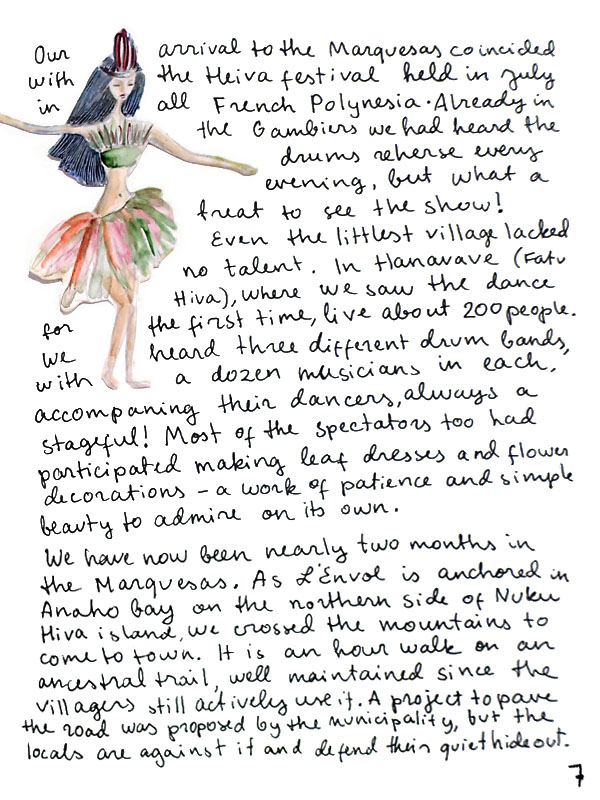 Our arrival to the Marquesas coincided
with the Heiva festival held in July
in all French Polynesia. Already in
the Gambiers we had heard the
drums reherse every
evening, but what a
treat to see the show!
Even the littlest village lacked
no talent. In Hanavave (Fatu
Hiva), where we saw the dance
for the first time, live about 200 people.
we heard three different drum bands,
with a dozen musicians in each,
accompaning their dancers, always a
stageful! Most of the spectators too had
participated making leaf dresses and flower
decorations – a work of patience and simple
beauty to admire on its own.
We have now been nearly two months in
the Marquesas. As L'Envol is anchored in
Anaho bay on the northern side of Nuku
Hiva island, we crossed the mountains to
come to town. It is an hour walk on an
ancestral trail, well maintained since the
villagers still actively use it. A project to pave
the road was proposed by the municipality, but the
locals are against it and defend their quiet hideout.
7